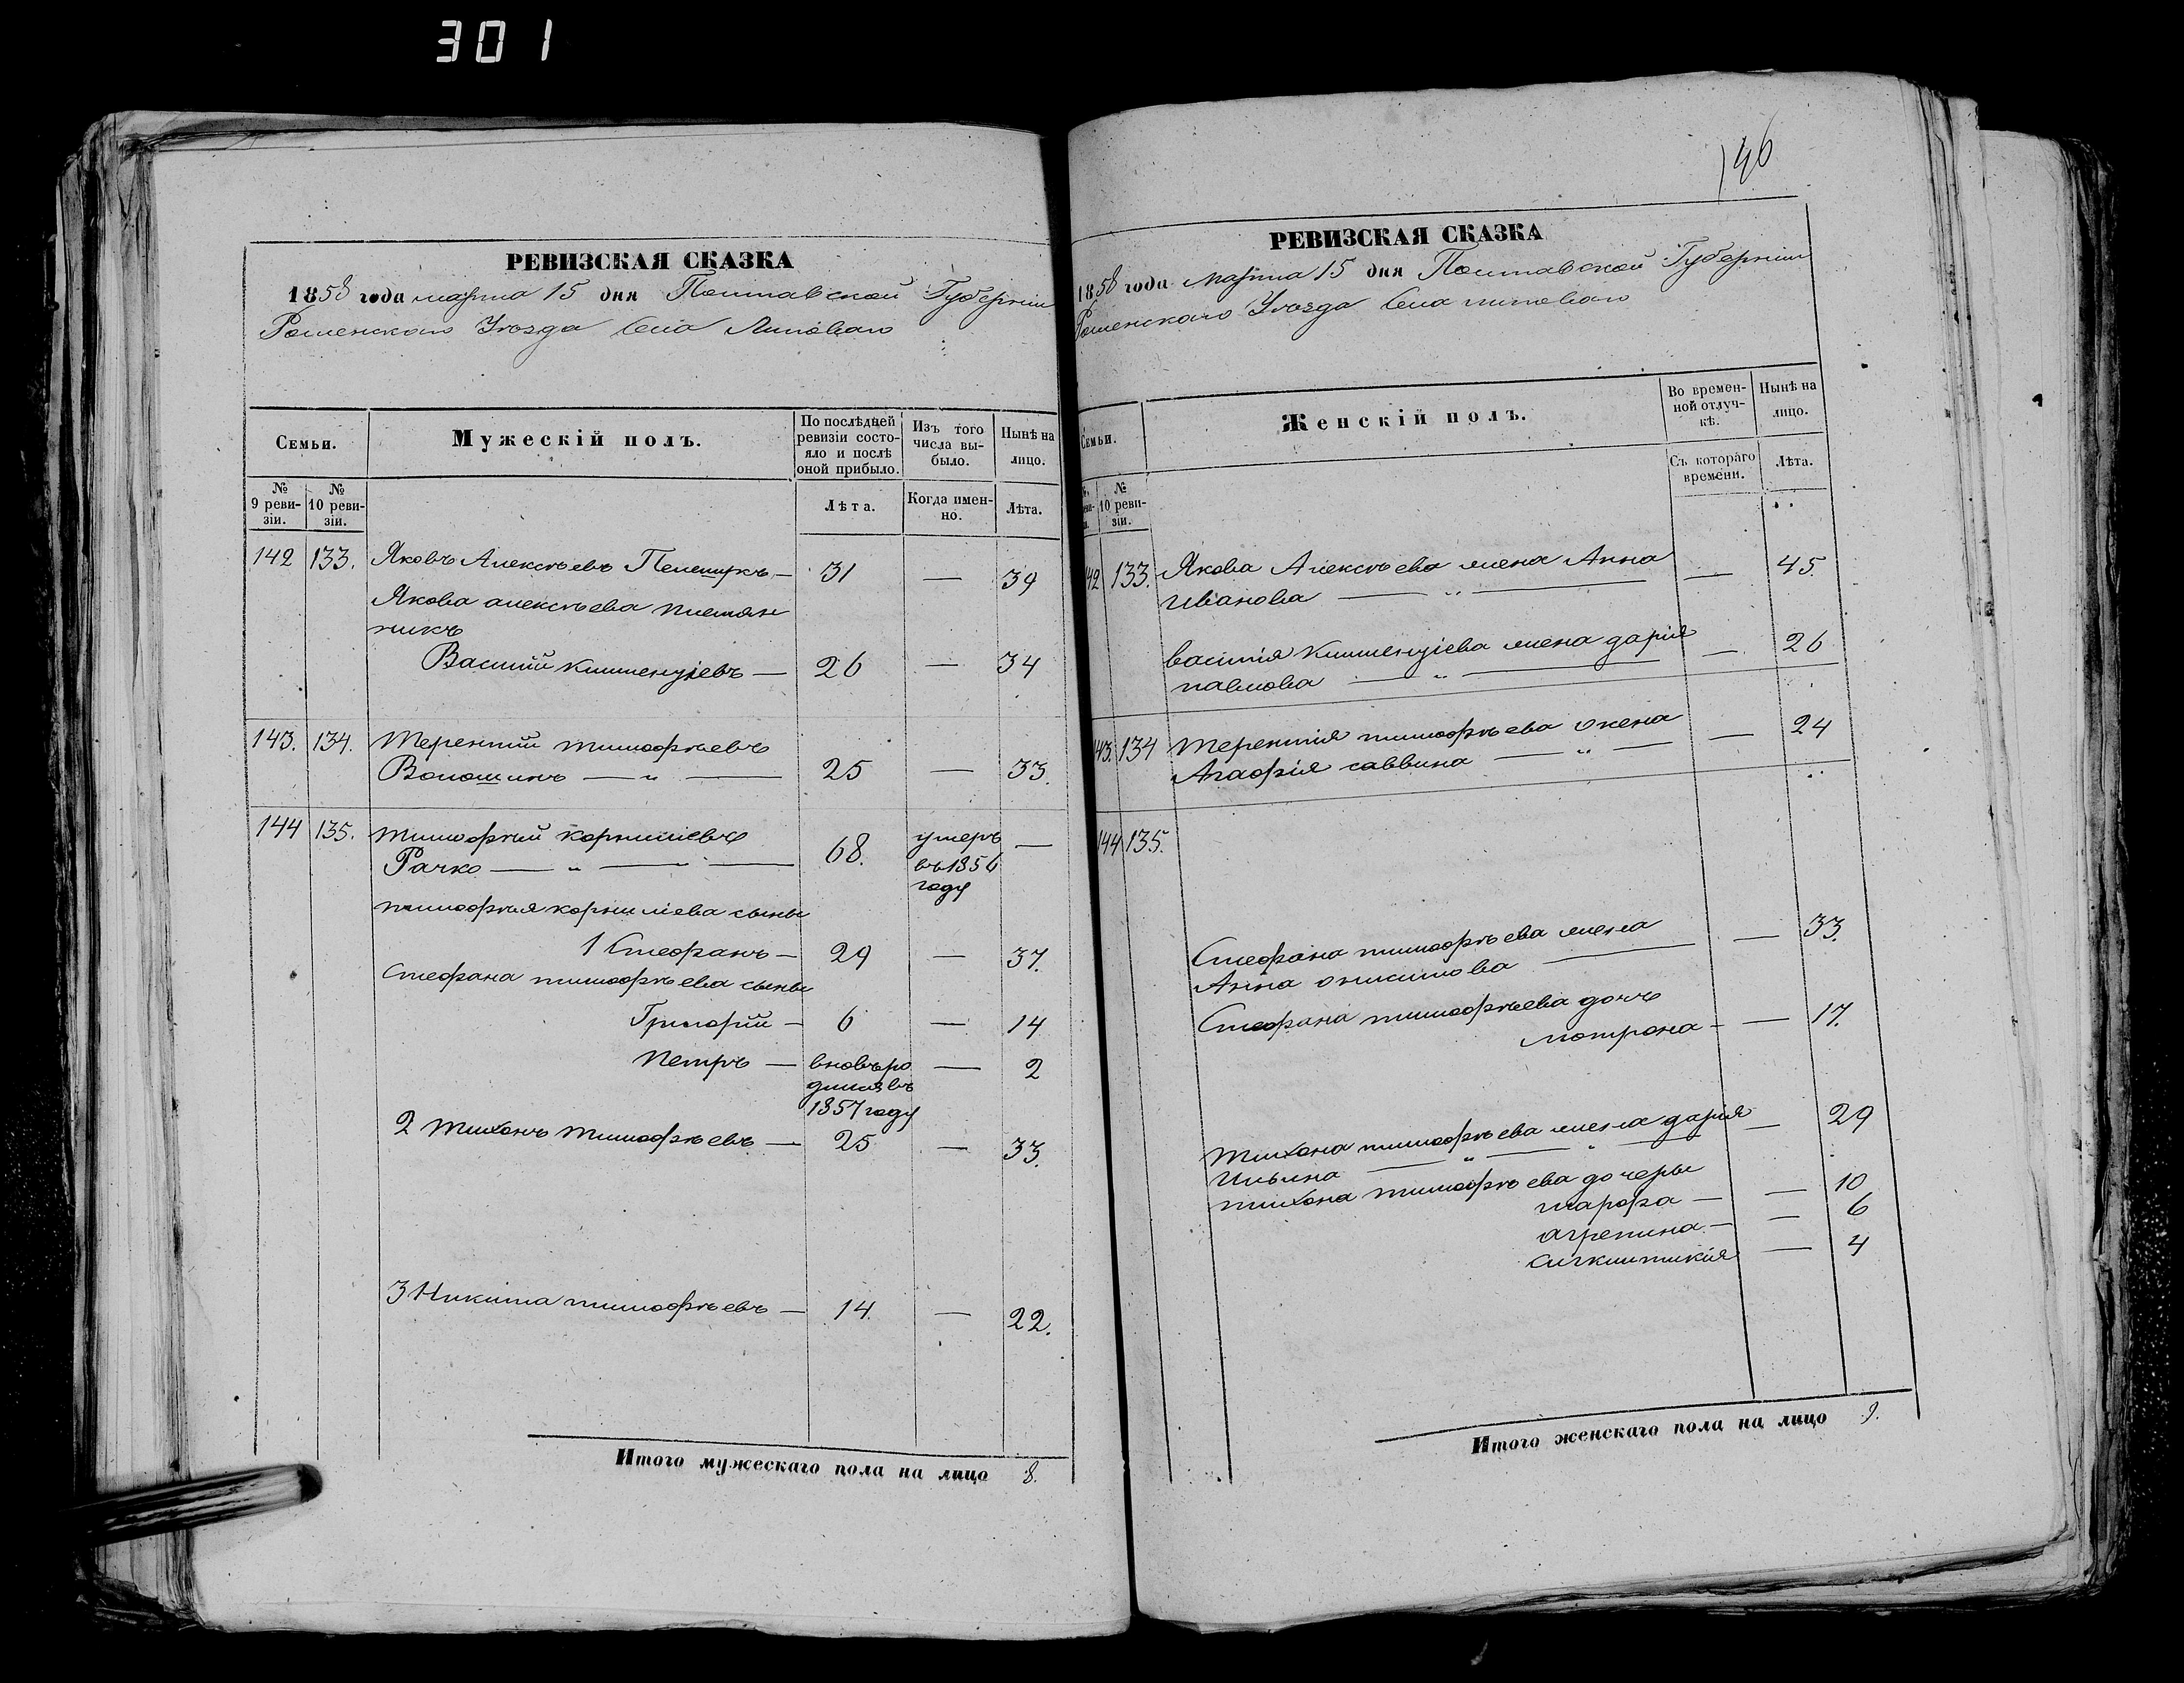 301
РЕВИЗСКАЯ СКАЗКА
1858 года марта 15 дня Полтавской Губерніи
Роменскаго Уѣзда Села Липоваго
Семьи.
Мужескій полъ.
По послѣдней ревизіи состо-
яло и послѣ
оной прибыло.
Изъ того
числа вы-
было.
Нынѣ на
лицо.
№
9 реви-
зіи.
№
10 реви-
зіи.
Лѣта.
Когда имен-
но.
Лѣта.
142 133. Яковъ Алексѣевъ — 31 — 39
Якова алексѣева племян
никъ
Василій — 26 — 34
143. 134. Терентій тимофѣевъ
Волошинъ — „ — 25 — 33.
144 135. тимофѣй корниліевъ
Рачко — „ — 68. умеръ
въ 1856
году —
тимофѣя корниліева сыны
1 Стефанъ — 29 — 37.
Стефана тимофѣева сыны
Григорій — 6 — 14
Петръ — вновь ро
дился въ
1857 году — 2
2 Тихонъ тимофѣевъ — 25 — 33.
3 Никита тимофѣевъ — 14. — 22.
Итого мужескаго пола на лицо 8.
146
РЕВИЗСКАЯ СКАЗКА
1858 года марта 15 дня Полтавской Губерніи
Роменскаго Уѣзда Села липоваго
Семьи.
Женскій полъ.
Во времен-
ной отлуч-
кѣ.
Нынѣ на
лицо.
№
10 реви-
зіи.
Съ котораго
времени.
Лѣта.
142 133. Якова Алексѣева жена Анна
Иванова — „ — — 45.
василія жена дарія
павлова — „ — — 26
143. 134 Терентія тимофѣева жена
Агафія саввина — „ — — 24
144 135.
Стефана тимофѣева жена
Анна онисимова — — 33.
Стефана тимофѣева дочь
мотрона — — 17.
тихона тимофѣева жена дарія
Ильина — „ — „ — — 29
тихона тимофѣева дочеры
марфа — — 10
агрепина — — 6
— 4
Итого женскаго пола на лицо 9.